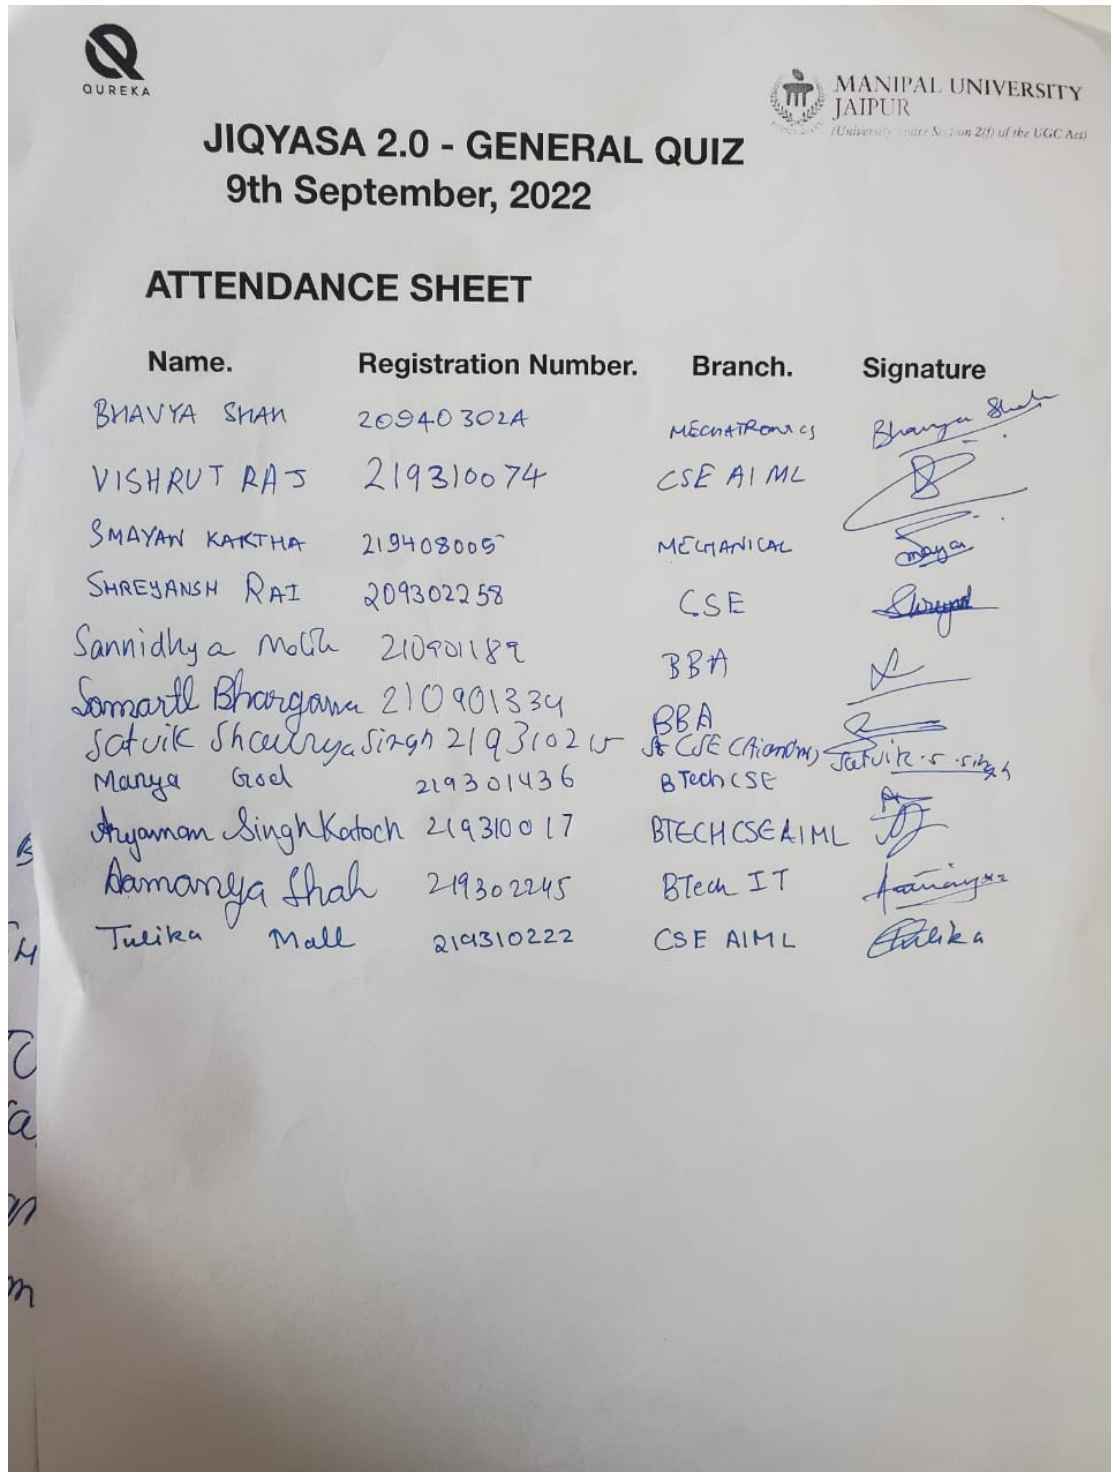 QUREKA
MANIPAL UNIVERSITY
JAIPUR
(University under Section 2(f) of the UGC Act)
JIQYASA 2.0 - GENERAL QUIZ
9th September, 2022
ATTENDANCE SHEET
Name. Registration Number. Branch. Signature
BHAVYA SHAH 20940302A MECHATRONICS Bhavya Shah
VISHRUT RAJ 219310074 CSE AI ML
SMAYAN KARTHA 219408005 MECHANICAL Smayan
SHREYANSH RAI 209302258 CSE
Sannidhya 210901189 BBA
Samarth Bhargava 210901334 BBA
Satvik Shaurya Singh 219310215 CSE (AI and ML) Satvik.S.Singh
Manya Goel 219301436 BTech CSE
Aryaman Singh Katoch 219310017 BTECH CSE AIML
Aamanya Shah 219302245 BTech IT Aamanya
Tulika Mall 219310222 CSE AIML Tulika